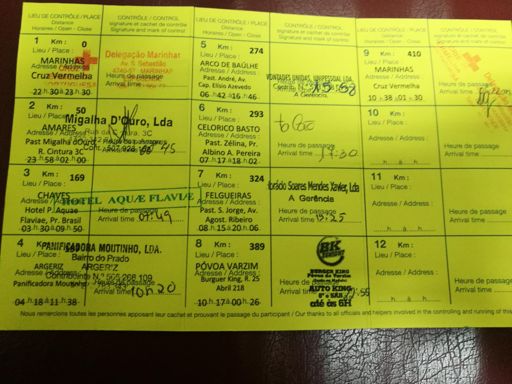 LIEU DE CONTRÔLE / PLACE
Distance
Horaires / Open - Close
CONTRÔLE / CONTROL
signature et cachet de contrôle
Signature and mark of control
LIEU DE CONTRÔLE / PLACE
Distance
Horaires / Open - Close
CONTRÔLE / CONTROL
signature et cachet de contrôle
Signature and mark of control
LIEU DE CONTRÔLE / PLACE
Distance
Horaires / Open - Close
CONTRÔLE / CONTROL
signature et cachet de
Signature and mark of
1 Km : 0
Lieu / Place :
MARINHAS
Adresse / Address :
Cruz Vermelha
22 h 30 23 h 30
Delegação Marinhas
Av. S. Sebastião
MARINHAS
Heure de passage
2 Km : 50
Lieu / Place :
AMARES
Adresse / Address :
Past Migalha d'Ouro
R. Cintura 3C
23 h 58 02 h 00
Migalha D'Ouro, Lda
3 Km : 169
Lieu / Place :
CHAVES
Adresse / Address :
Hotel P. Aquae
Flaviae, Pr. Brasil
03 h 30 09 h 50
HOTEL AQUÆ FLAVIÆ
Heure de passage
Arrival time 07:49
4 Km :
Lieu / Place :
ARGERIZ
Adresse / Address :
Panificadora Moutinho
04 h 18 11 h 38
PANIFICADORA MOUTINHO, LDA.
Bairro do Prado
ARGERIZ
Contribuinte N.º 505 268 109
Heure de passage
Arrival time 10h20
5 Km : 274
Lieu / Place :
ARCO DE BAÚLHE
Adresse / Address :
Past. André, Av.
Cap. Elísio Azevedo
06 h 42 16 h 46
VONTADES UNIPESSOAL LDA.
A Gerência
6 Km : 293
Lieu / Place :
CELORICO BASTO
Adresse / Address :
Past. Zélina, Pr.
Albino A. Pereira
07 h 17 18 h 02
Heure de passage
Arrival time 17:30
7 Km : 324
Lieu / Place :
FELGUEIRAS
Adresse / Address :
Past. S. Jorge, Av.
Agost. Ribeiro
08 h 15 20 h 06
Horácio Soares Mendes Xavier, Lda
A Gerência
Heure de passage
Arrival time
8 Km : 389
Lieu / Place :
PÓVOA VARZIM
Adresse / Address :
Burguer King, R. 25
Abril 218
10 h 17 00 h 26
BK
BURGER KING
Póvoa de Varzim
AUTO KING
6ª e SÁB
até às 6H
9 Km : 410
Lieu / Place :
MARINHAS
Adresse / Address :
Cruz Vermelha
10 h 38 01 h 30
Heure de passage
Arrival time
10 Km :
Lieu / Place :
Adresse / Address :
h à h
Heure de passage
Arrival time
11 Km :
Lieu / Place :
Adresse / Address :
h à h
Heure de passage
Arrival time
12 Km :
Lieu / Place :
Adresse / Address :
h à h
Heure de passage
Arrival time
Nous remercions toutes les personnes apposant leur cachet et prouvant le passage du participant / Our thanks to all officials and helpers involved in the controlling and running of this